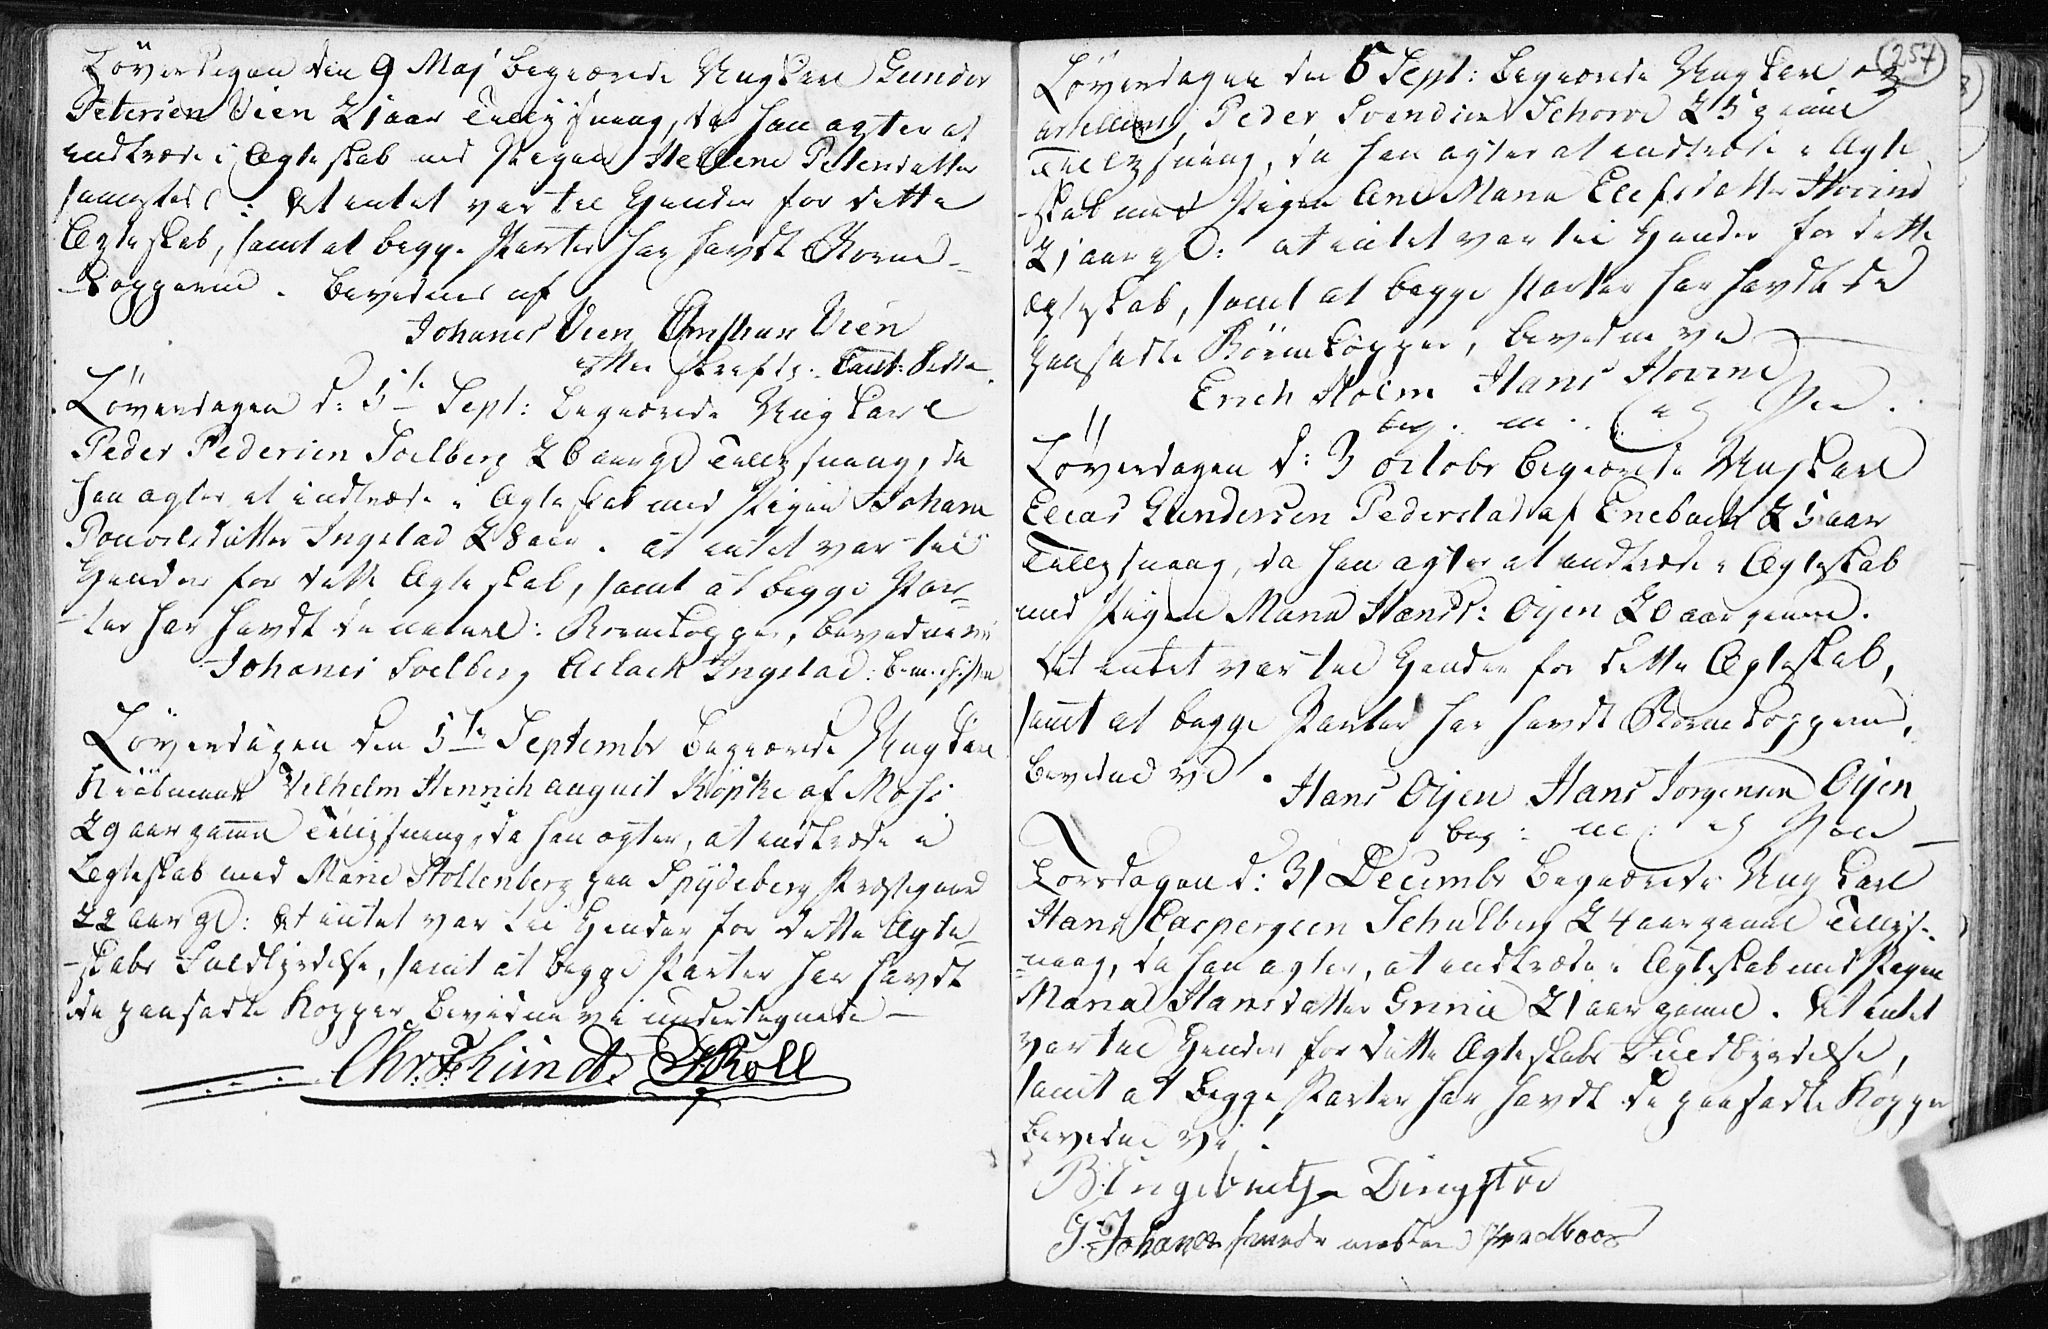 Löverdagen den 9 Maj begiærede Ungkarl Gunder
Petersen Vien 21 aar Tillysning, da han agter at
indtræde i Ægteskab med Pigen Hellene Petersdatter
At intet var til Hinder for dette
Ægteskab, samt at begge Parter har havdt Børne-
kopperne. bevidnes af
Johanes Vien Christian Vien
Löverdagen d: 5te Sept: begiærede Ungkarl
Peder Pedersen Solberg 26 aar gl Tillysning, da
han agter at indtræde i Ægteskab med Pigen Johane
Povelsdatter Ingstad 28 aar. at intet var til
Hinder for dette Ægteskab, samt at begge Par-
ter har havdt de naturl: Børnekopper, bevidner vi
Johanes Solberg Aslack Ingstad:
Löverdagen den 5te Septembr begiærede Ungkarl
Kiöbmand Vilhelm Henrich August Köpke af Moss
29 aar gammel Tillysning, da han agter, at indtræde i
Ægteskab med Marie Stoltenberg paa Spydeberg Præstegaard
22 aar gl: At intet var til Hinder for dette Ægte-
-skabs Fuldbyrdelse, samt at begge Parter har havdt
de paasadte Kopper bevidne vi undertegnede
Chr. Skoll
257
Löverdagen den 5 Sept: begiærede Ungkarl og
Peder Svendsen 25 gamel
Tillysning, da han agter at indtræde i Ægte
-skab med Pigen Ane Maria Elefsdatter Hovind
21 aar gl: at intet var til Hinder for dette
Ægteskab, samt at begge Parter har havdt de
paasadte Börnekopper, bevidne vi
Erich Holm Hans Hovind
Löverdagen d: 3 octobr begiærede Ungkarl
Elias Gundersen Pederstad af Enebach 25 aar
Tillysning, da han agter at indtræde i Ægteskab
med Pigen Maria Hansd: Oijen 20 aar gamel.
At intet var til Hinder for dette Ægteskab,
samt at begge Parter har havdt Børnekopperne,
bevidne vi.
Hans Oijen Hans Jorgensen Oijen
Torsdagen d: 31 Decembr begiærede Ungkarl
Hans Caspersen Schulberg 24 aar gamel Tillys-
-ning, da han agter, at indtræde i Ægteskab med Pigen
Maria Hansdatter Grinie 21 aar gamel. At intet
var til Hinder for dette Ægteskabs Fuldbyrdelse,
samt at begge Parter har havdt de paasadte Kopper
bevidne vi.
B: Ingebretsen Dingstad
G. Johanes